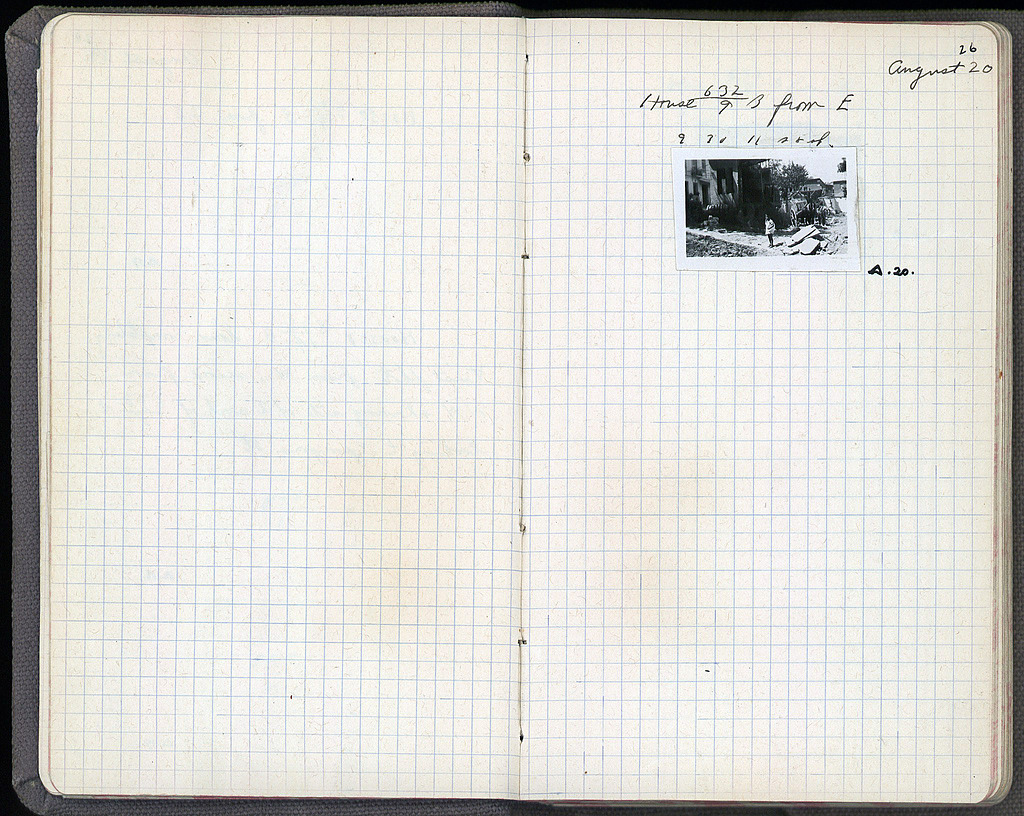 26
August 20
House 632/9 B from E
9 30 11
A.20.